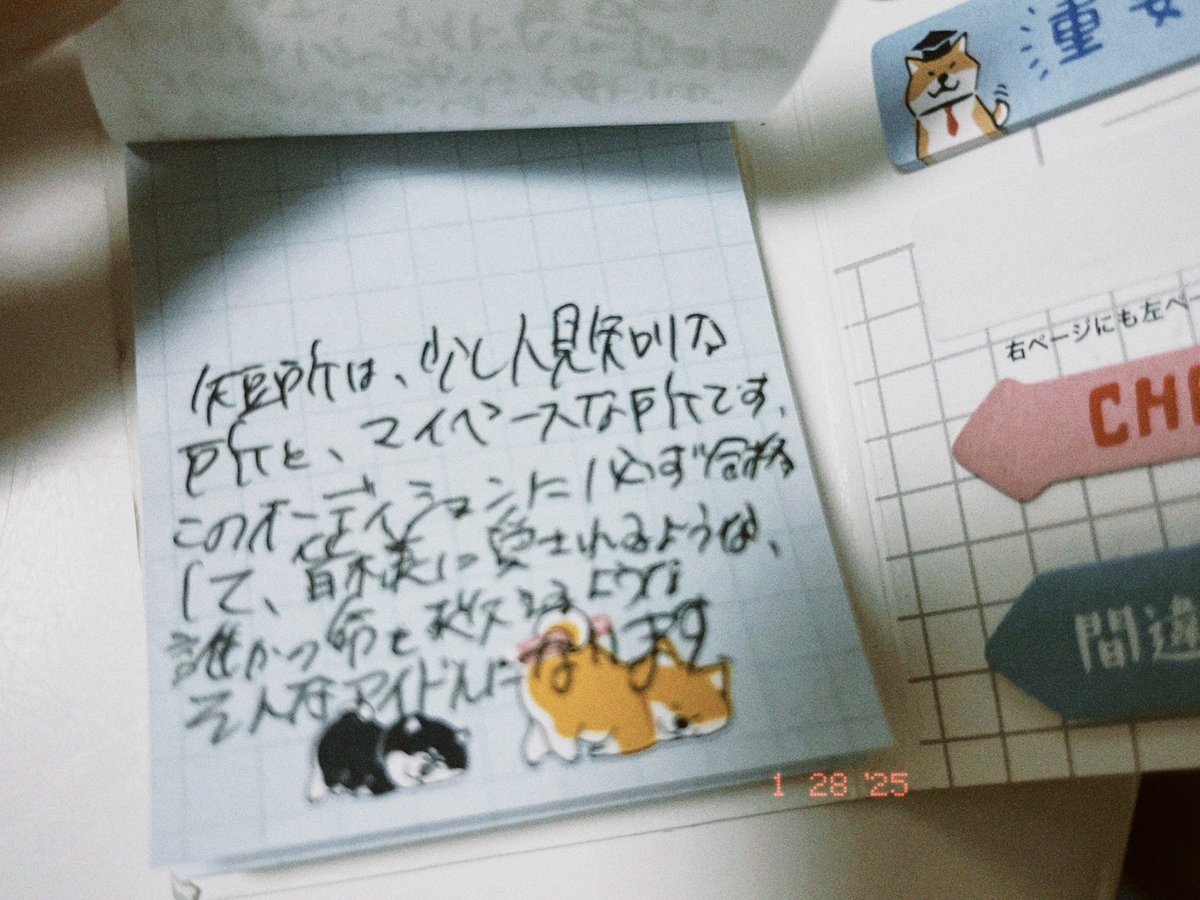 短所は、少し人見知りな
所と、マイペースな所です。
このオーディションに必ず合格
して、皆様に愛されるような、
誰かの命を救えるような
そんなアイドルになります
重要
右ページにも左ペ
CHE
間違
1 28 '25